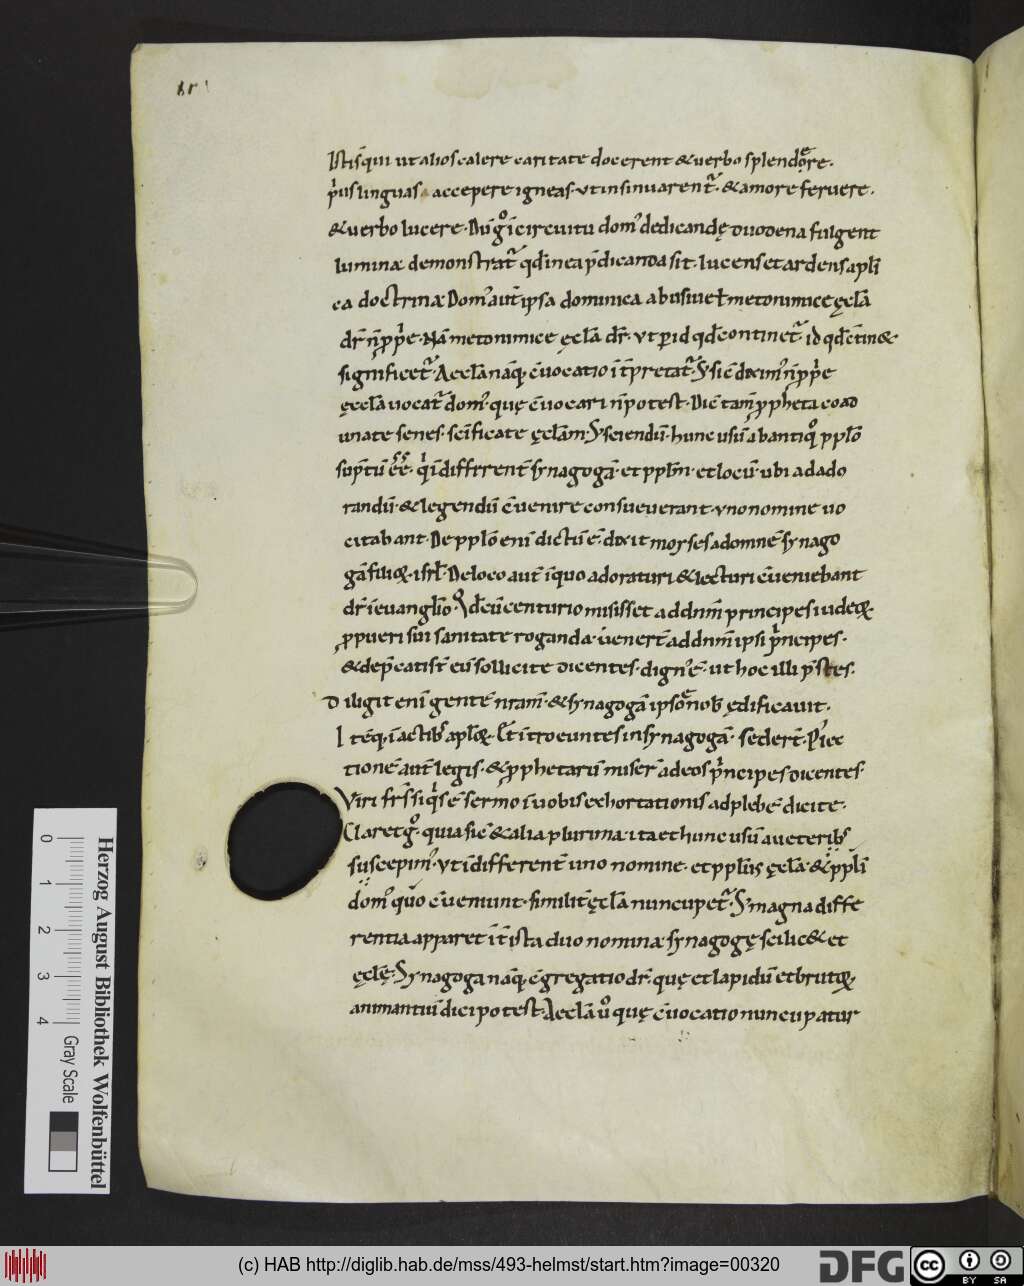 Istis̄ qui ut alios calere caritate docerent & uerbo splendore.
p̄us linguas accepere igneas. ut insinuarent᷑. & amore feruere.
& uerbo lucere. Dū gͦ ī circuitu domꝰ dedicandę duodena fulgent
lumina demonstrat᷑ qđ in ea p̄dicanda sit. lucens et ardens apłi
ca doctrina. Domꝰ aut̄ ipsa dominica abusiue ł metonimice ęcła
dr̄ n̄ ꝓp̄e. Nā metonimice ęcła dr̄. ut ꝑ id qđ continet᷑. id qđ c̄tin&
significet᷑. Aecła nāq; c̄uocatio īt̄pretat᷑. S; sic̄ dixim᷒ n̄ ꝓp̄e
ęcła uocat᷑ domꝰ. quę c̄uocari n̄ potest. Dic̄ tam̄ ꝓpheta coad
unate senes. sc̄ificate ęcłam. S; sciendū. hunc usū ab antiqͦ ppło
sūptū ēē. q̄ īdifferent̄ synagogā. et ppłm. et locū ubi ad ado
randū. & legendū c̄uenire consueuerant. uno nomine uo
citabant. De ppło enī dictū ē. dixit moyses ad omnē synago
gā filioꝝ isrł. De loco aut̄ ī quo adoraturi & lecturi c̄ueniebant
dr̄ ī euanglio. Qđ cū centurio misisset ad dnm̄ principes iudęoꝝ
ꝓ pueri sui sanitate roganda. uenert̄ ad dnm̄ ipsi p̄ncipes.
& dep̄catisr̄ eū sollicite dicentes. dignꝰ ē. ut hoc illi p̄stes.
Diligit enī gentē nram̄. & synagogā ipse nob̄ ędificauit.
Itēq; ī actibꝰ apłoꝝ. Et īntroeuntes in synagogā. sedert̄. P̄ lec
tionē aut̄ legis. & ꝓphetarū miser̄ ad eos p̄ncipes dicentes.
Viri frs̄ si q̄s ē sermo ī uobis exhortationis ad plebē dicite.
Claret gͦ. quia sic̄ & alia plurima. ita et hunc usū a ueteribꝰ
suscepimꝰ. Ut īdifferent̄ uno nomine. et ppłus ęcła. & ppłi
domꝰ quo c̄ueniunt. similit̄ ęcła nuncupet᷑. S; magna diffe
rentia apparet īt̄ ista duo nomina. synagogę scilic& et
ęcłę. Synagoga nāq; c̄gregatio dr̄. quę et lapidū et brutoꝝ
animantiū dici potest. Aecła ū quę c̄uocatio nuncupatur
Herzog August Bibliothek Wolfenbüttel
0 1 2 3 4
Gray Scale
(c) HAB http://diglib.hab.de/mss/493-helmst/start.htm?image=00320
DFG
cc BY SA